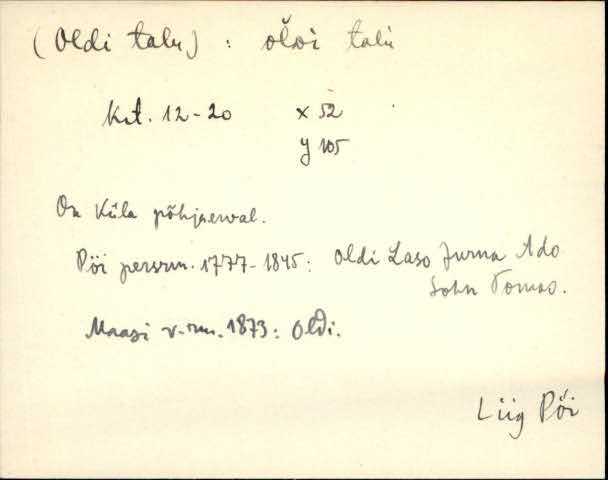 (Oldi talu) : olDi talu
krt. 12-20 x 52
y 105
On küla põhjaserval.
Pöi persrm. 1777-1845: Oldi Laso Jurna Ado
Sohn Tomas.
Maasi v-rm. 1873: Oldi.
Liig Pöi